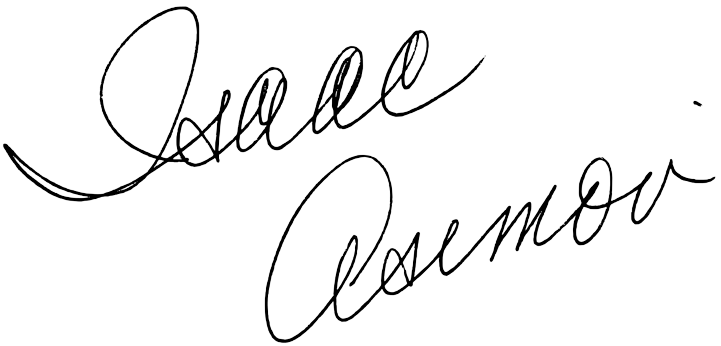 Isaac
Asimov